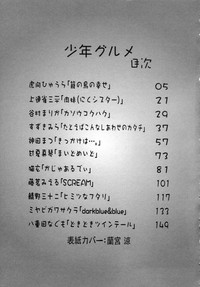 少年グルメ
目次
虎向ひゅうら「籠の鳥の幸せ」 05
上連雀三平「肉姉(にくシスター)」 21
谷村まりか「カソウコウハク」 29
すずきみら「たとえばこんなしあわせのカタチ」 37
神田まつ「きっかけは…」 57
甘夏真琴「まいどめいど」 73
猫玄「がじゃあるでぃ」 81
藤茗みえる「SCREAM」 101
越野三十二「ヒミツなフタリ」 117
ミヤビガワサクラ「darkblue&blue」 133
八重田なぐも「ときどきツインテール」 149
表紙カバー：蘭宮 涼